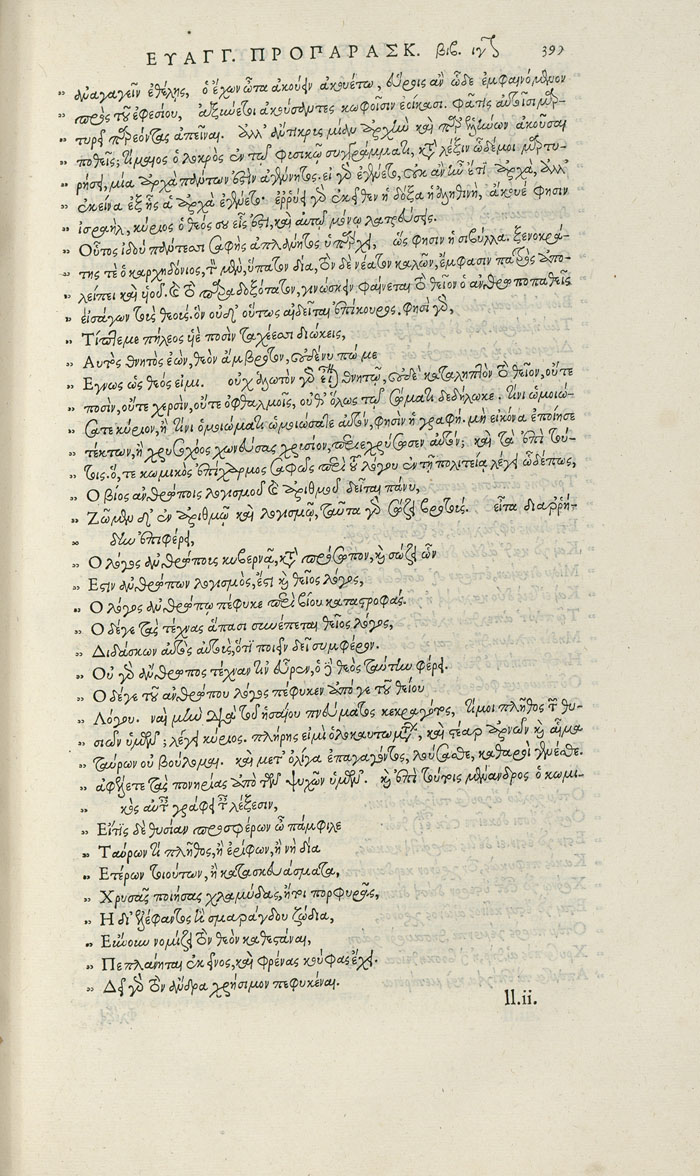 ΕΥΑΓΓ. ΠΡΟΠΑΡΑΣΚ. βιβ. ιγʹ 399
„ ἀναγαγεῖν ἐθέλῃς, ὁ ἔχων ὦτα ἀκούειν ἀκουέτω, εὕροις ἂν ὧδε ἐμφαινόμενον
„ πρὸς τοῦ ἐφεσίου, ἀξύνετοι ἀκούσαντες κωφοῖσιν ἐοίκασι. φάτις αὐτοῖσι μαρ-
„ τυρεῖ παρεόντας ἀπεῖναι. ἀλλ’ ἄντικρις μίαν ἀρχὴν καὶ παρ’ ἑλλήνων ἀκοῦσαι
„ ποθεῖς; τίμαιος ὁ λοκρὸς ἐν τῷ φυσικῷ συγγράμματι, κατὰ λέξιν ὧδέ μοι μαρτυ-
„ ρήσει, μία ἀρχὰ πάντων ἐστὶν ἀγένητος. εἰ γὰρ ἐγένετο, οὐκ ἂν ἦν ἔτι ἀρχὰ, ἀλλ’
„ ἐκείνα ἐξ ἧς ἁ ἀρχὰ ἐγένετο. ἐρρύη γὰρ ἐκεῖθεν ἡ δόξα ἡ ἀληθινή, ἄκουέ φησιν
„ ἰσραὴλ, κύριος ὁ θεός σου εἷς ἐστι, καὶ αὐτῷ μόνῳ λατρεύσεις.
„ Οὗτος ἰδοὺ πάντεσσι σαφὴς ἀπλάνητος ὑπάρχει, ὥς φησιν ἡ σιβύλλα. ξενοκρά-
„ της τὲ ὁ καρχηδόνιος, τὸν μὲν, ὕπατον δία, τὸν δὲ νέατον καλῶν, ἔμφασιν πατρὸς ἀπο-
„ λείπει καὶ ὑοῦ. καὶ τὸ παραδοξότατον, γινώσκειν φαίνεται τὸ θεῖον ὁ ἀνθρωποπαθεῖς
„ εἰσάγων τοὺς θεούς. ὃν οὐδ’ οὕτως αἰδεῖται ἐπίκουρος. φησὶ γὰρ,
„ Τίπτέ με πήλεος ὑιὲ ποσὶν ταχέεσσι διώκεις,
„ Αὐτὸς θνητὸς ἐὼν, θεὸν ἄμβροτον, οὐδένυ πώ με
„ Εγνως ὡς θεός εἰμι. οὐχ ἁλωτὸν γὰρ εἶναι θνητῷ, οὐδὲ καταληπτὸν τὸ θεῖον, οὔτε
„ ποσὶν, οὔτε χερσὶν, οὔτε ὀφθαλμοῖς, οὐδ’ ὅλως τῷ σώματι δεδήλωκε. τίνι ὡμοιώ-
„ σατε κύριον, ἢ τίνι ὁμοιώματι ὡμοιώσατε αὐτόν, φησὶν ἡ γραφή. μὴ εἰκόνα ἐποίησε
„ τέκτων, ἢ χρυσοχόος χωνεύσας χρυσίον, περιεχρύσωσεν αὐτόν; καὶ τὰ ἐπὶ τού-
„ τοις. ὅ, τε κωμικὸς ἐπίχαρμος σαφῶς περὶ τοῦ λόγου ἐν τῇ πολιτείᾳ λέγει ὧδέ πως,
„ Ο βίος ἀνθρώποις λογισμοῦ καὶ ἀριθμοῦ δεῖται πάνυ,
„ Ζῶμεν δ’ ἐν ἀριθμῷ καὶ λογισμῷ, ταῦτα γὰρ σῴζει βροτούς. εἶτα διαρρή-
„ δην ἐπιφέρει,
„ Ο λόγος ἀνθρώποις κυβερνᾷ, κατὰ τρόπον, καὶ σώζει ὢν
„ Εστιν ἀνθρώπων λογισμὸς, ἔστι καὶ θεῖος λόγος,
„ Ο λόγος ἀνθρώπῳ πέφυκε περὶ βίου καταστροφάς.
„ Ο δέγε τὰς τέχνας ἅπασι συνέπεται θεῖος λόγος,
„ Διδάσκων αὐτὸς αὐτοὺς, ὅ,τι ποιεῖν δεῖ συμφέρον.
„ Οὐ γὰρ ἄνθρωπος τέχναν τὶν’ εὗρεν, ὁ δὲ θεὸς ταύταν φέρει.
„ Ο δέγε τοῦ ἀνθρώπου λόγος πέφυκεν ἀπό γε τοῦ θείου
„ Λόγου. ναὶ μὴν διὰ τοῦ ἡσαΐου πνεύματος κεκραγότος, τί μοι πλῆθος τῶν θυ-
„ σιῶν ὑμῶν; λέγει κύριος. πλήρης εἰμὶ ὁλοκαυτωμάτων, καὶ στέαρ ἀρνῶν καὶ αἷμα
„ ταύρων οὐ βούλομαι. καὶ μετ’ ὀλίγα ἐπαγαγόντος, λούσασθε, καθαροὶ γένεσθε.
„ ἀφέλετε τὰς πονηρίας ἀπὸ τῶν ψυχῶν ὑμῶν. καὶ ἐπὶ τούτοις μένανδρος ὁ κωμι-
κὸς αὐταῖς γράφει ταῖς λέξεσιν,
„ Εἴ τις δὲ θυσίαν προσφέρων ὦ πάμφιλε
„ Ταύρων τὶ πλῆθος, ἢ ἐρίφων, ἢ νὴ δία
„ Ετέρων τοιούτων, ἢ κατασκευάσματα,
„ Χρυσᾶς ποιήσας χλαμύδας, ἤτοι πορφυρᾶς,
„ Η δι’ ἐλέφαντος ἢ σμαράγδου ζώδια,
„ Εὔνουν νομίζει τὸν θεὸν καθεστάναι,
„ Πεπλάνηται ἐκεῖνος, καὶ φρένας κούφας ἔχει.
„ Δεῖ γὰρ τὸν ἄνδρα χρήσιμον πεφυκέναι.
ll.ii.